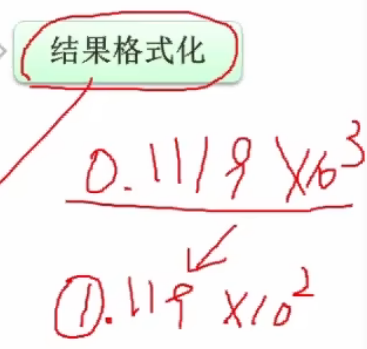 结果格式化
0.1119 ×10³
1.119 ×10²